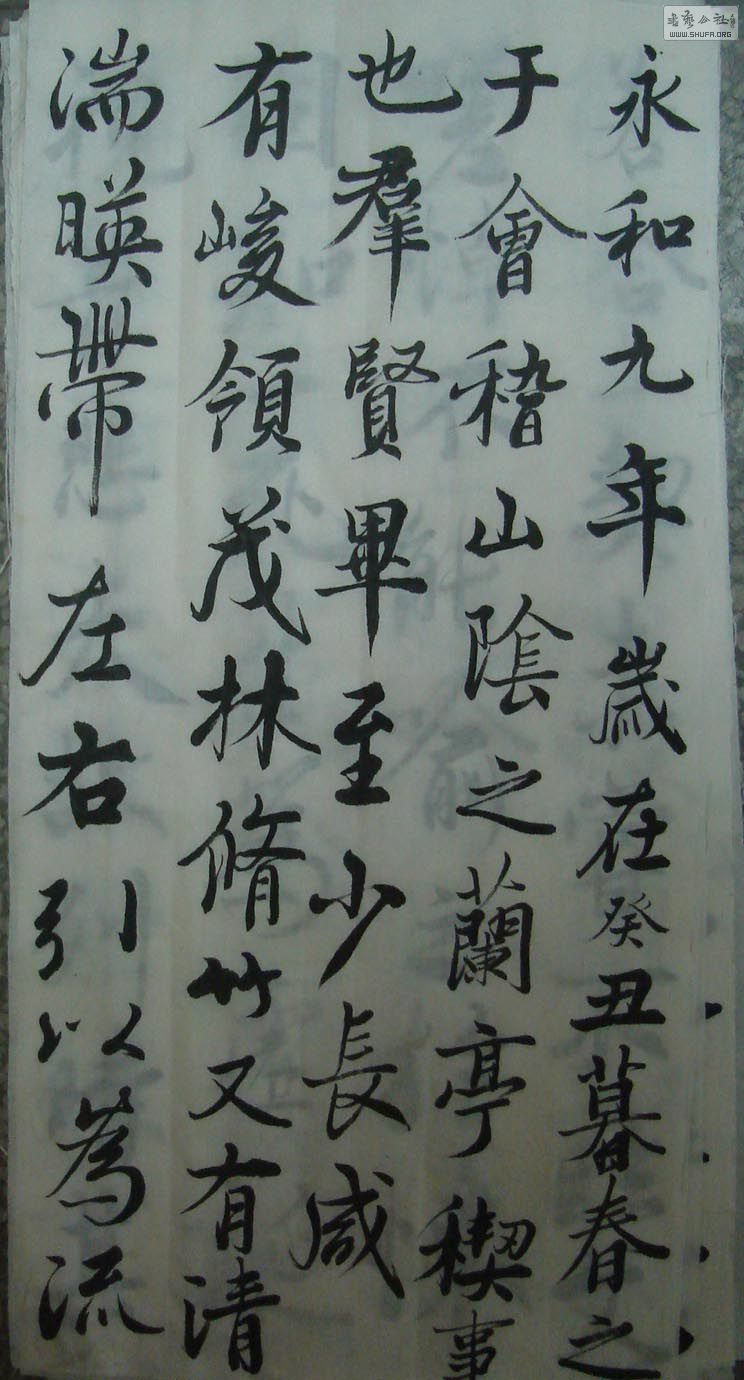 永和九年歲在癸丑暮春之
于會稽山陰之蘭亭稧事
也羣賢畢至少長咸
有峻領茂林脩竹又有清
湍暎帶左右引以為流
书艺公社
WWW.SHUFA.ORG